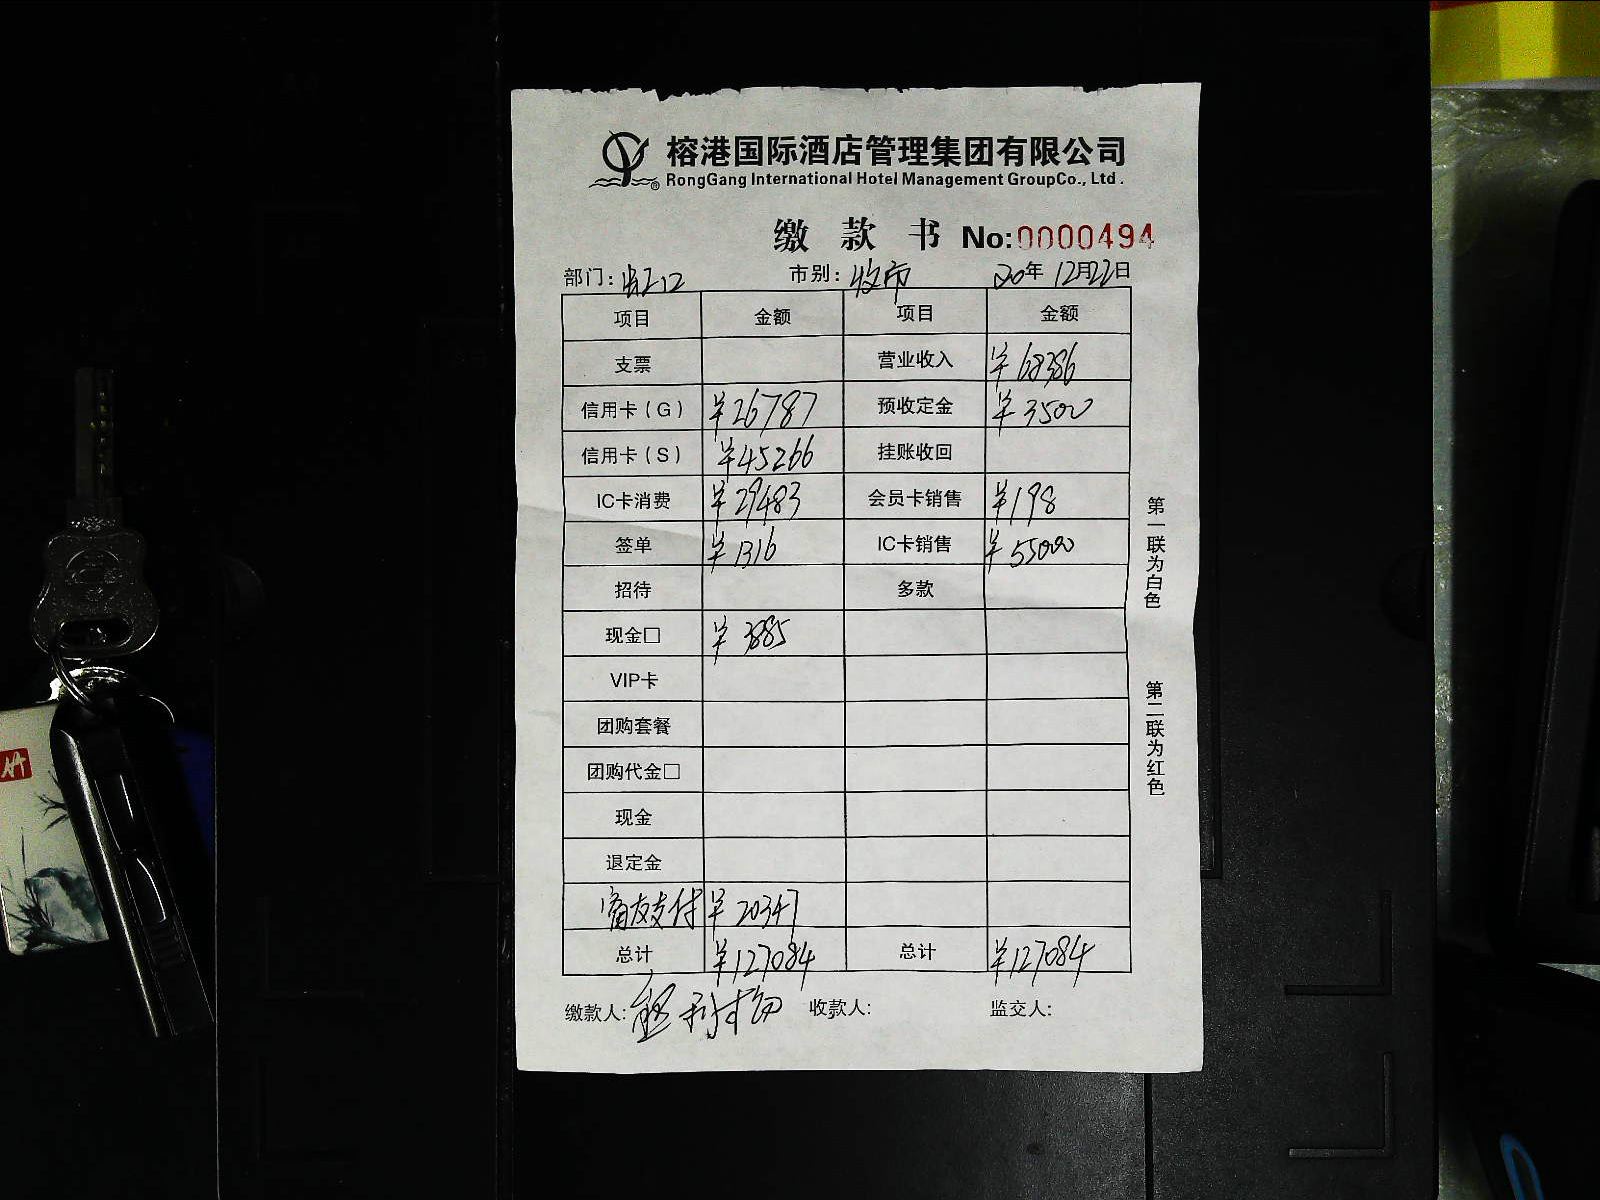 榕港国际酒店管理集团有限公司
RongGang International Hotel Management GroupCo., Ltd.
缴款书 No:0000494
部门: 市别:收市 20年12月22日
项目 金额 项目 金额
支票 营业收入 ¥68386
信用卡(G) ¥26787 预收定金 ¥3500
信用卡(S) ¥45266 挂账收回
IC卡消费 ¥29483 会员卡销售 ¥198
签单 ¥1316 IC卡销售 ¥55000
招待 多款
现金□ ¥3885
VIP卡
团购套餐
团购代金□
现金
退定金
商友支付 ¥20347
总计 ¥127084 总计 ¥127084
缴款人: 收款人: 监交人:
第一联为白色
第二联为红色